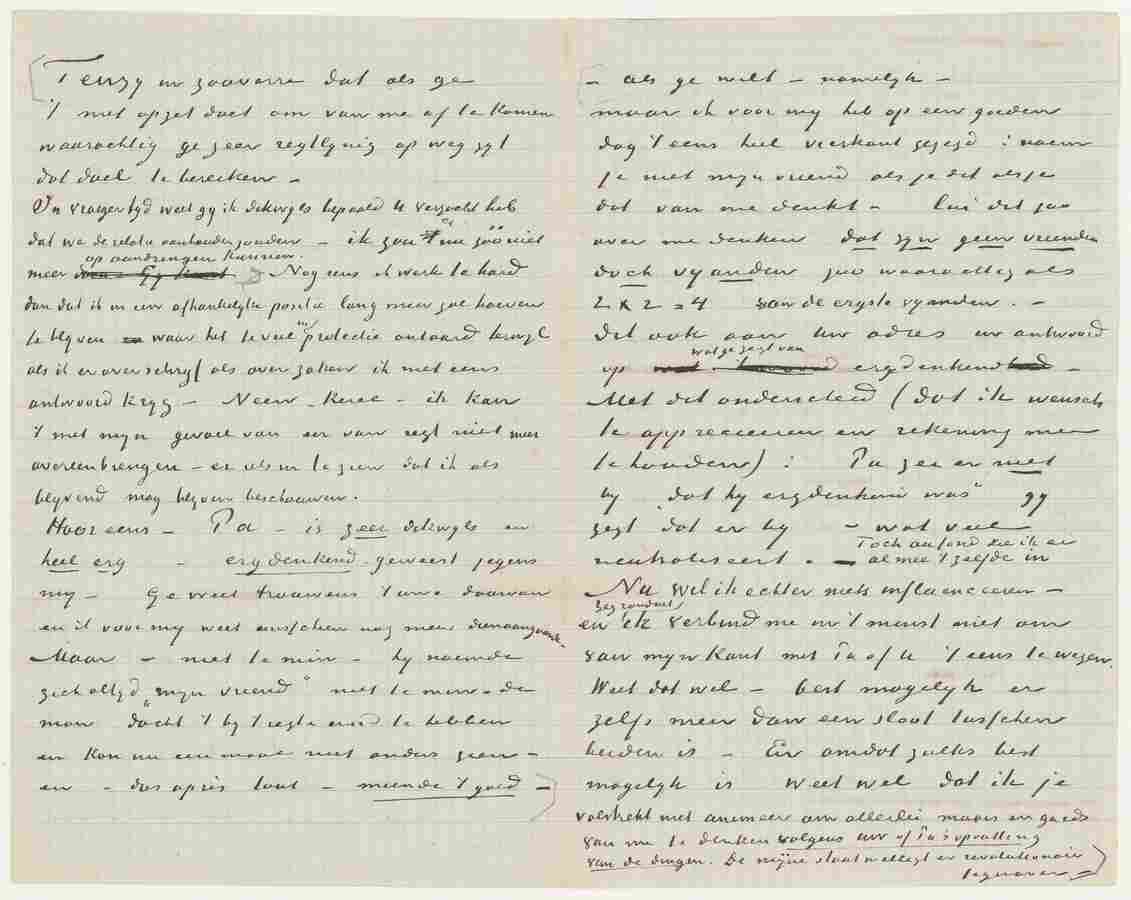 Tenzy in zooverre dat als ge
't met opzet doet om van me af te komen
waarachtig ge zeer regtlynig op weg zyt
dat doel te bereiken –
In vroeger tyd weet gy ik dikwyls bepaald U verzocht heb
dat we de relatie aanhouden zouden – ik zou er nu zóó niet
op aandringen kunnen.
meer Nog eens ik werk te hard
dan dat ik in een afhankelyke positie lang meer zal hoeven
te blyven waar het te veel in protectie ontaard terwyl
als ik er over schryf als over zaken ik niet eens
antwoord kryg – Neen – kerel – ik kan
't met myn gevoel van eer van regt niet meer
overeenbrengen – er als in te zien dat ik als
blyvend mag beschouwen.
Hoor eens – Pa – is zeer dikwyls en
heel erg – ergdenkend geweest jegens
my – Ge weet trouwens 't uwe daarvan
en ik voor my weet misschien nog meer dienaangaande.
Maar – niet te min – hy noemde
zich altyd „myn vriend” niet te min – de
man dacht 't by 't regte eind te hebben
en kon nu eenmaal niet anders zien –
en – das après tout – meende 't goed –
– als ge wilt – namelyk –
maar ik voor my heb op een goeden
dag 't eens heel vierkant gezegd : noem
je niet myn vriend als je dit als je
dat van me denkt – Lui die zoo
over me denken dat zyn geen vrienden
doch vyanden zoo waarachtig als
2 x 2 = 4 van de ergste vyanden. –
dit ook aan Uw adres en antwoord
wat ge zegt van
op ergdenkend –
Met dit onderscheid (dat ik wensch
te apprecieeren en rekening mee
te houden) : Pa zei er niet
by „dat hy ergdenkend was” gy
zegt dat er by – wat veel
Toch au fond zie ik er
neutraliseert. – al mee 't zelfde in
Nu wil ik echter niets influenceeren –
gezondheid
en ik verbind me in 't minst niet om
van myn kant met Pa of U 't eens te wezen.
Weet dat wel – best mogelyk er
zelfs meer dan een sloot tusschen
beiden is – En omdat zulks best
mogelyk is weet wel dat ik je
volstrekt niet animeer om allerlei moois en goeds
van me te denken volgens uw of Pa's opvatting
van de dingen. De myne staat wellegt er revolutionair
tegenover –